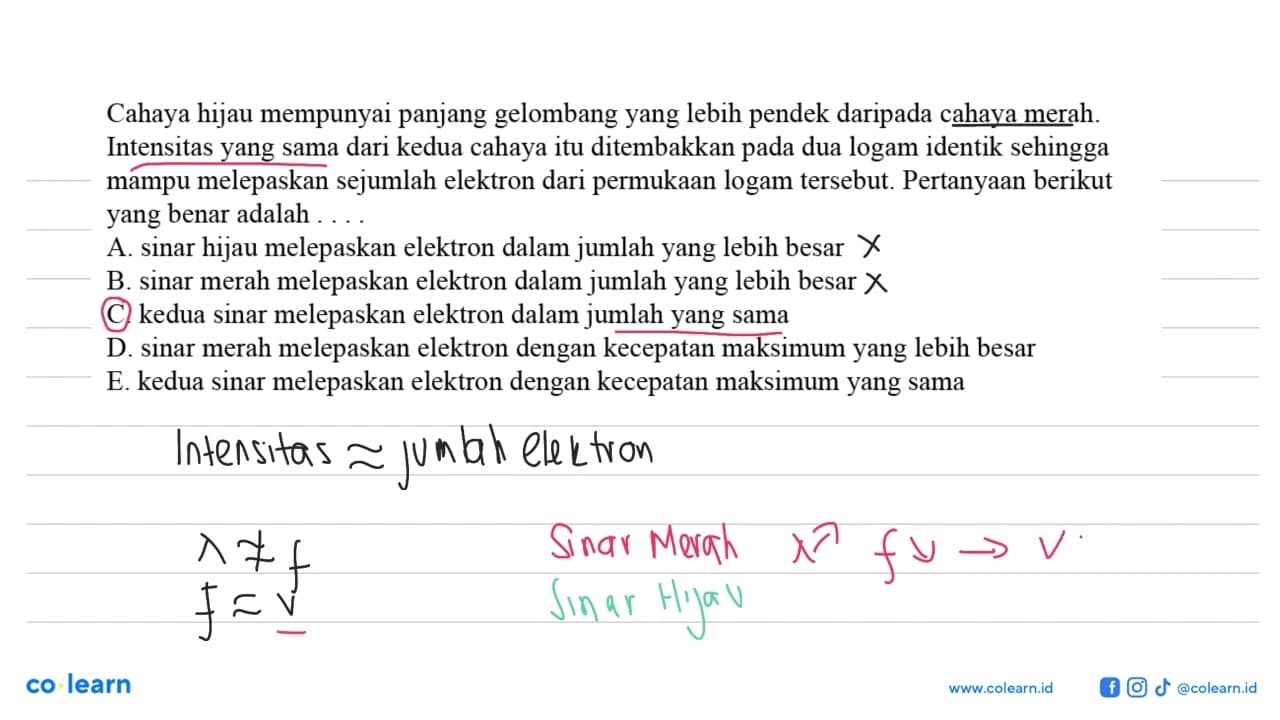 Cahaya hijau mempunyai panjang gelombang yang lebih pendek daripada cahaya merah.
Intensitas yang sama dari kedua cahaya itu ditembakkan pada dua logam identik sehingga
mampu melepaskan sejumlah elektron dari permukaan logam tersebut. Pertanyaan berikut
yang benar adalah . . . .
A. sinar hijau melepaskan elektron dalam jumlah yang lebih besar X
B. sinar merah melepaskan elektron dalam jumlah yang lebih besar X
C. kedua sinar melepaskan elektron dalam jumlah yang sama
D. sinar merah melepaskan elektron dengan kecepatan maksimum yang lebih besar
E. kedua sinar melepaskan elektron dengan kecepatan maksimum yang sama
Intensitas ≈ jumlah elektron
λ ≉ f
f ≈ v
Sinar Merah λ↗ f↘ → v
Sinar Hijau
co·learn
www.colearn.id
@colearn.id